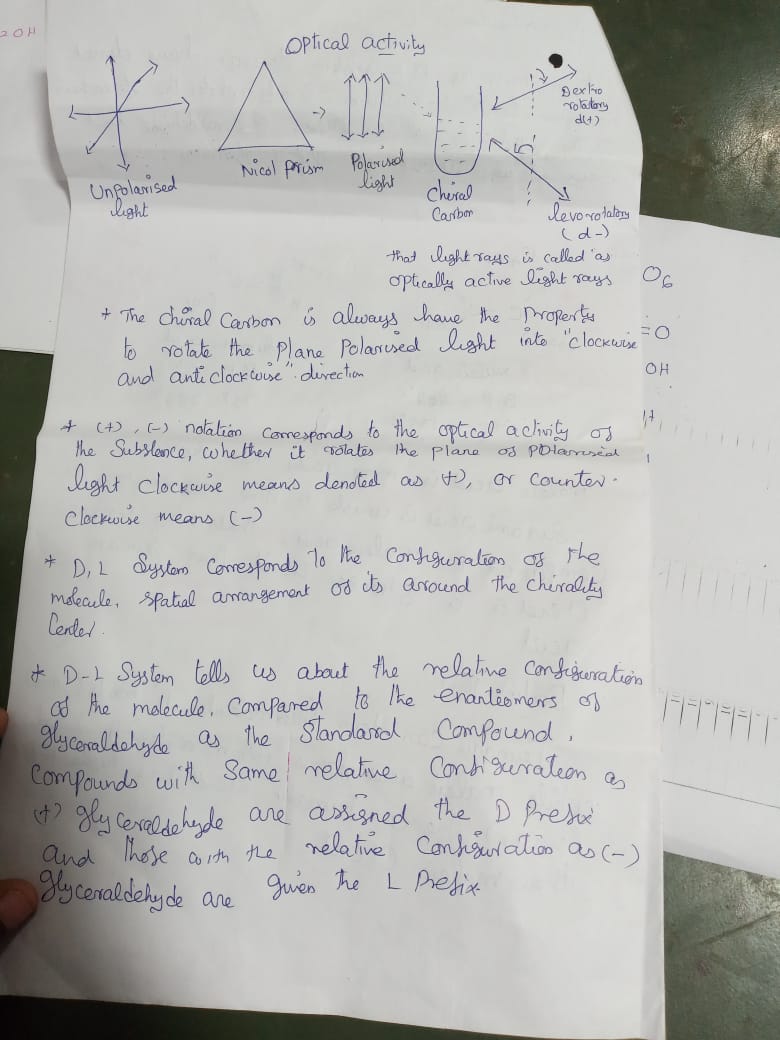 2OH
Optical activity
Unpolarised
light
Nicol Prism
Polarised
light
Chiral
Carbon
Dextro
rotatory
d(+)
levorotatory
(d-)
that light rays is called as
optically active light rays
* The chiral Carbon is always have the Property
to rotate the Plane Polarised light into "clockwise
and anticlockwise". direction
* (+), (-) notation corresponds to the optical activity of
the Substance, whether it rotates the plane of Polarised
light clockwise means denoted as (+), or counter-
clockwise means (-)
* D, L System Corresponds to the Configuration of the
molecule, spatial arrangement of its around the chirality
Center.
* D-L System tells us about the relative Configuration
of the molecule, Compared to the enantiomers of
glyceraldehyde as the Standard Compound,
Compounds with Same relative Configuration as
(+) glyceraldehyde are assigned the D Prefix
and those with the relative Configuration as (-)
glyceraldehyde are given the L Prefix
O6
=O
OH
H